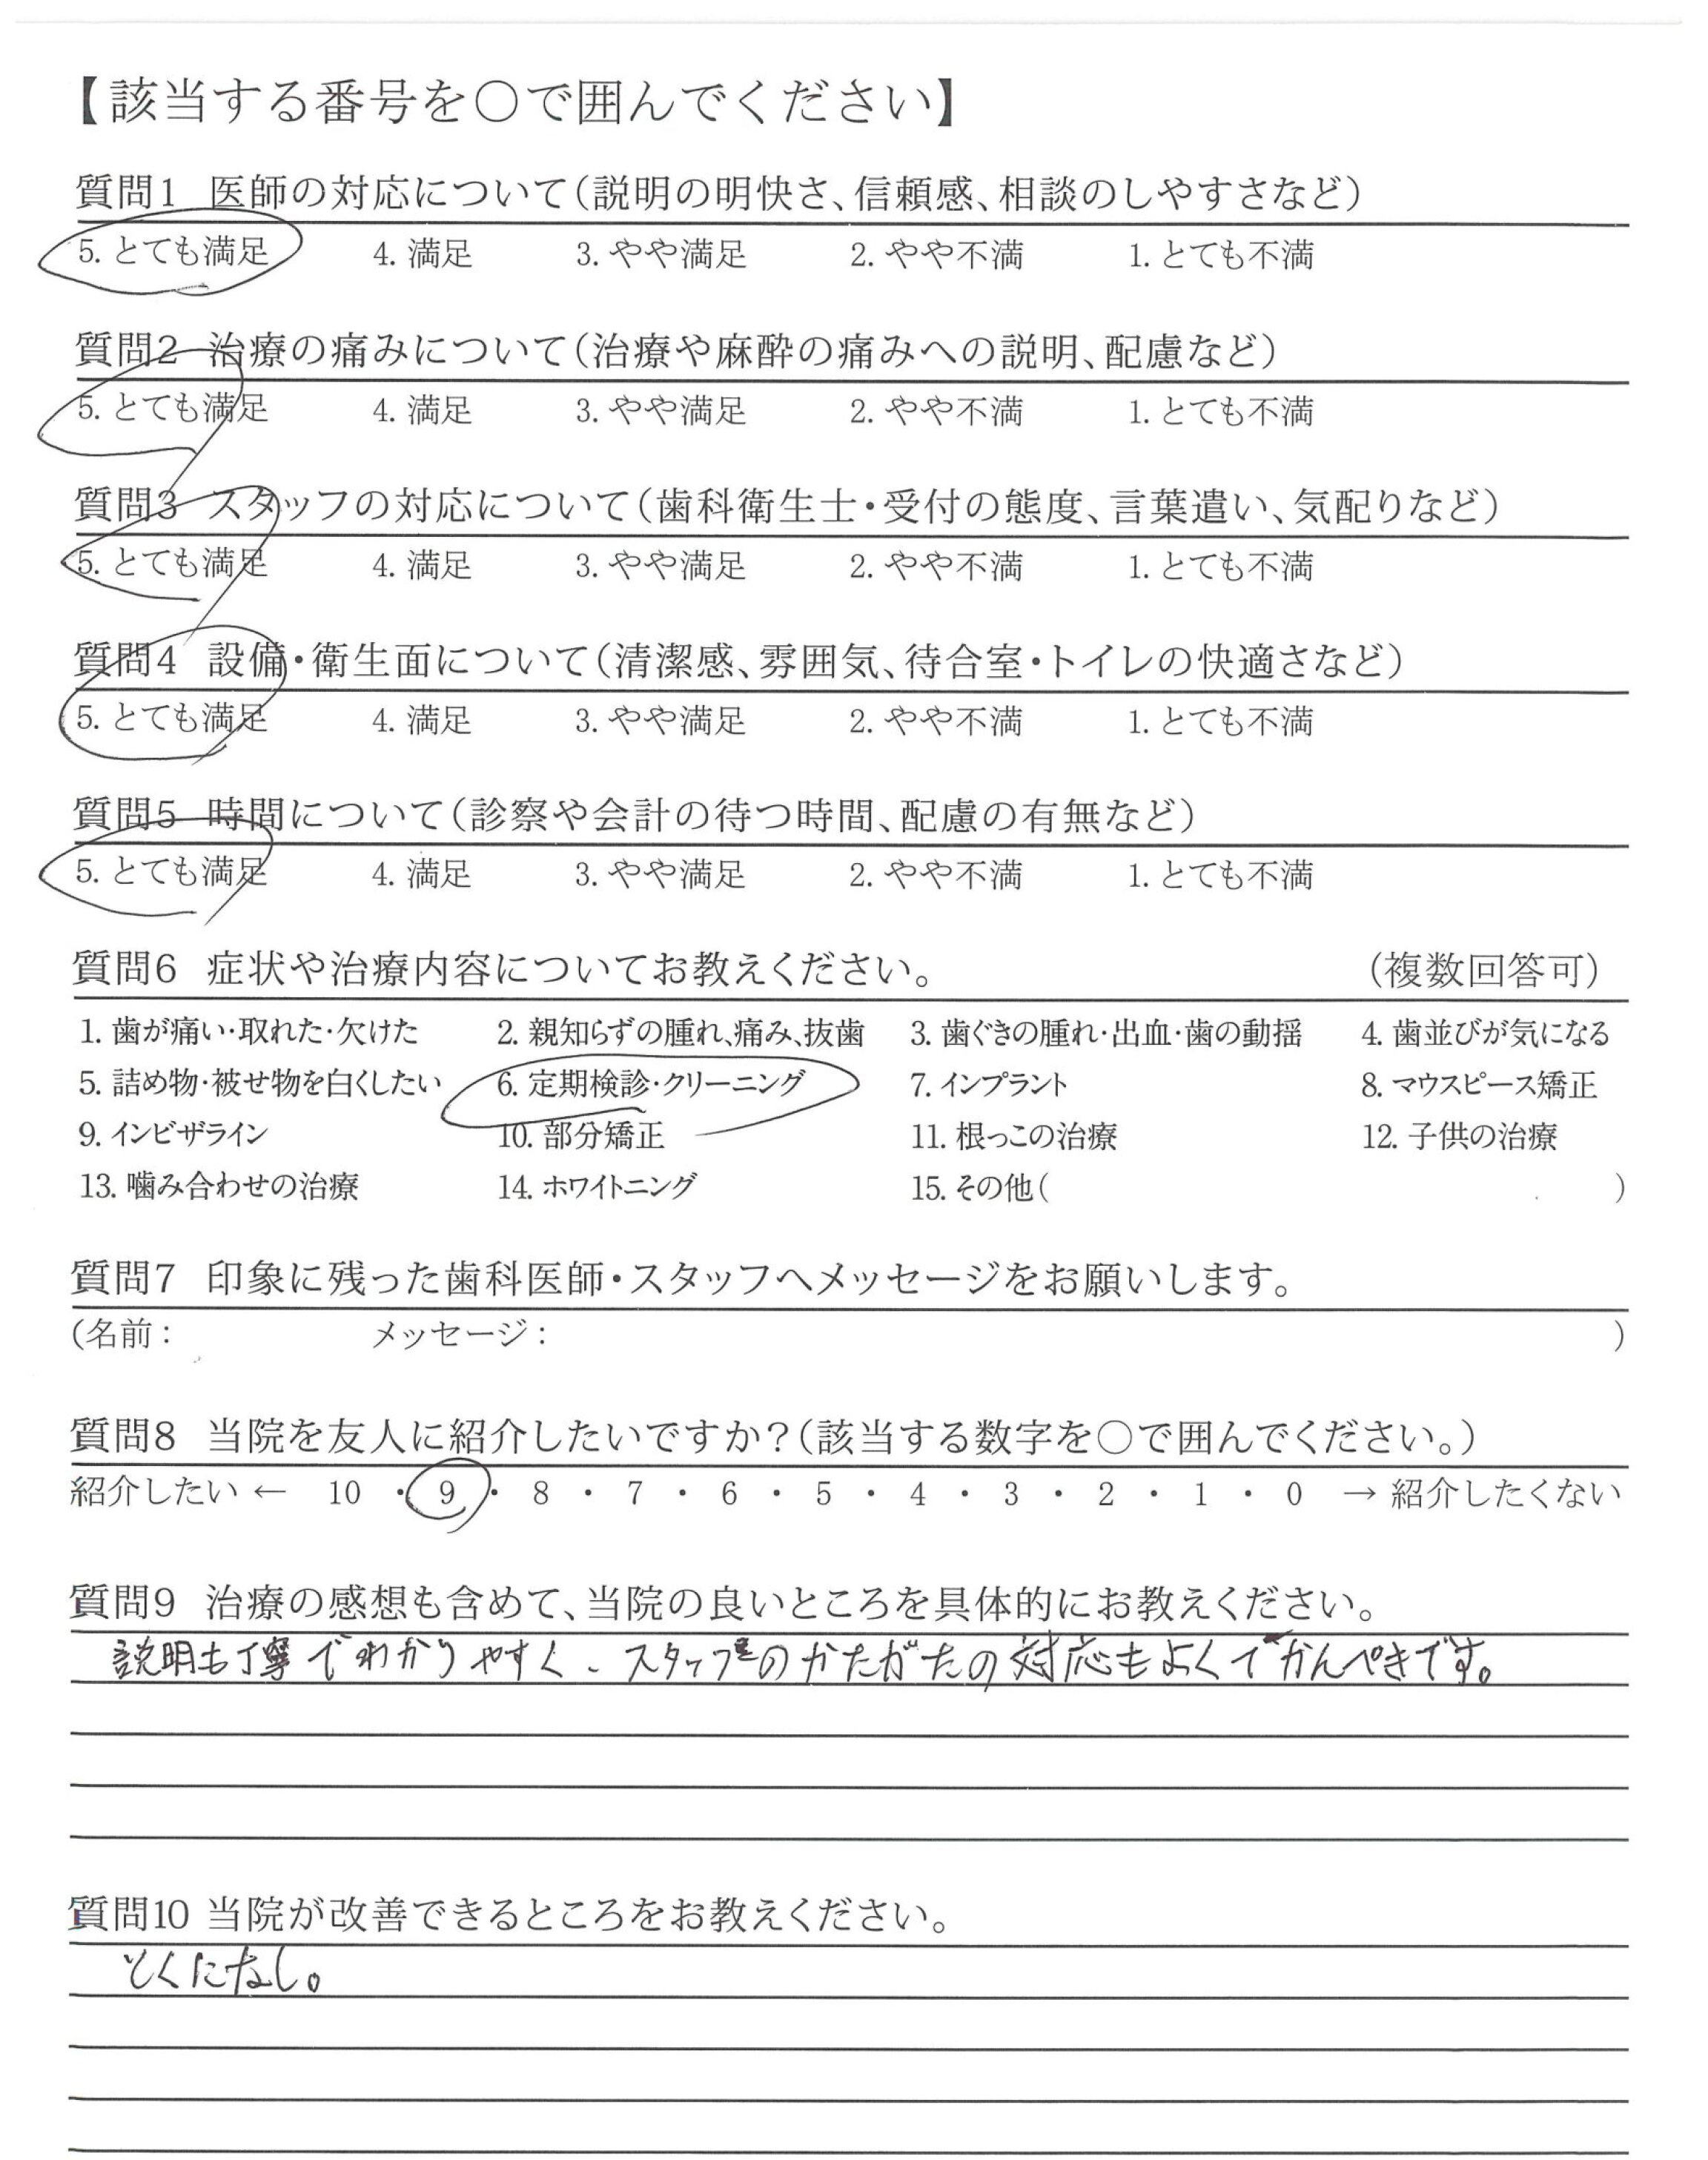 【該当する番号を○で囲んでください】
質問1 医師の対応について(説明の明快さ、信頼感、相談のしやすさなど)
5. とても満足 4. 満足 3. やや満足 2. やや不満 1. とても不満
質問2 治療の痛みについて(治療や麻酔の痛みへの説明、配慮など)
5. とても満足 4. 満足 3. やや満足 2. やや不満 1. とても不満
質問3 スタッフの対応について(歯科衛生士・受付の態度、言葉遣い、気配りなど)
5. とても満足 4. 満足 3. やや満足 2. やや不満 1. とても不満
質問4 設備・衛生面について(清潔感、雰囲気、待合室・トイレの快適さなど)
5. とても満足 4. 満足 3. やや満足 2. やや不満 1. とても不満
質問5 時間について(診察や会計の待つ時間、配慮の有無など)
5. とても満足 4. 満足 3. やや満足 2. やや不満 1. とても不満
質問6 症状や治療内容についてお教えください。 (複数回答可)
1. 歯が痛い・取れた・欠けた 2. 親知らずの腫れ、痛み、抜歯 3. 歯ぐきの腫れ・出血・歯の動揺 4. 歯並びが気になる
5. 詰め物・被せ物を白くしたい 6. 定期検診・クリーニング 7. インプラント 8. マウスピース矯正
9. インビザライン 10. 部分矯正 11. 根っこの治療 12. 子供の治療
13. 噛み合わせの治療 14. ホワイトニング 15. その他( )
質問7 印象に残った歯科医師・スタッフへメッセージをお願いします。
(名前: メッセージ: )
質問8 当院を友人に紹介したいですか?(該当する数字を○で囲んでください。)
紹介したい ← 10 ・ 9 ・ 8 ・ 7 ・ 6 ・ 5 ・ 4 ・ 3 ・ 2 ・ 1 ・ 0 → 紹介したくない
質問9 治療の感想も含めて、当院の良いところを具体的にお教えください。
説明も丁寧でわかりやすく、スタッフのかたがたの対応もよくてかんぺきです。
質問10 当院が改善できるところをお教えください。
とくになし。